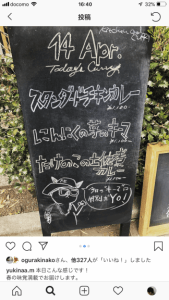 docomo 16:40 32%
投稿
14 Apr.
Today's Curry
スタンダードチキンカレー
にんにくの芽のキーマ
たけのこの土佐煮
カレー
YO!
ogurakinakoさん、他327人が「いいね！」しました
yukinaa.m 本日こんな感じです！
春の味覚満載でお届けします。